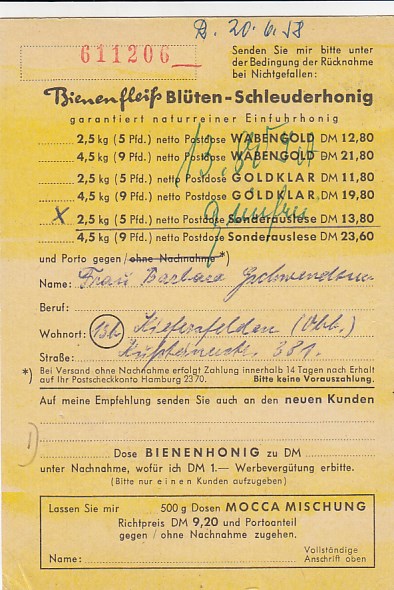 B. 20.6.58
611206
Senden Sie mir bitte unter
der Bedingung der Rücknahme
bei Nichtgefallen:
Bienenfleiß Blüten-Schleuderhonig
garantiert naturreiner Einfuhrhonig
2,5 kg (5 Pfd.) netto Postdose WABENGOLD DM 12,80
4,5 kg (9 Pfd.) netto Postdose WABENGOLD DM 21,80
2,5 kg (5 Pfd.) netto Postdose GOLDKLAR DM 11,80
4,5 kg (9 Pfd.) netto Postdose GOLDKLAR DM 19,80
X 2,5 kg (5 Pfd.) netto Postdose Sonderauslese DM 13,80
4,5 kg (9 Pfd.) netto Postdose Sonderauslese DM 23,60
und Porto gegen / ohne Nachnahme *)
Name: Frau Barbara
Beruf:
Wohnort: 13b Kiefersfelden (Obb.)
Straße: 381.
*) Bei Versand ohne Nachnahme erfolgt Zahlung innerhalb 14 Tagen nach Erhalt
auf Ihr Postscheckkonto Hamburg 2370. Bitte keine Vorauszahlung.
Auf meine Empfehlung senden Sie auch an den neuen Kunden
1)
Dose BIENENHONIG zu DM
unter Nachnahme, wofür ich DM 1.— Werbevergütung erbitte.
(Bitte nur einen Kunden aufzugeben)
Lassen Sie mir 500 g Dosen MOCCA MISCHUNG
Richtpreis DM 9,20 und Portoanteil
gegen / ohne Nachnahme zugehen.
Name: Vollständige
Anschrift oben